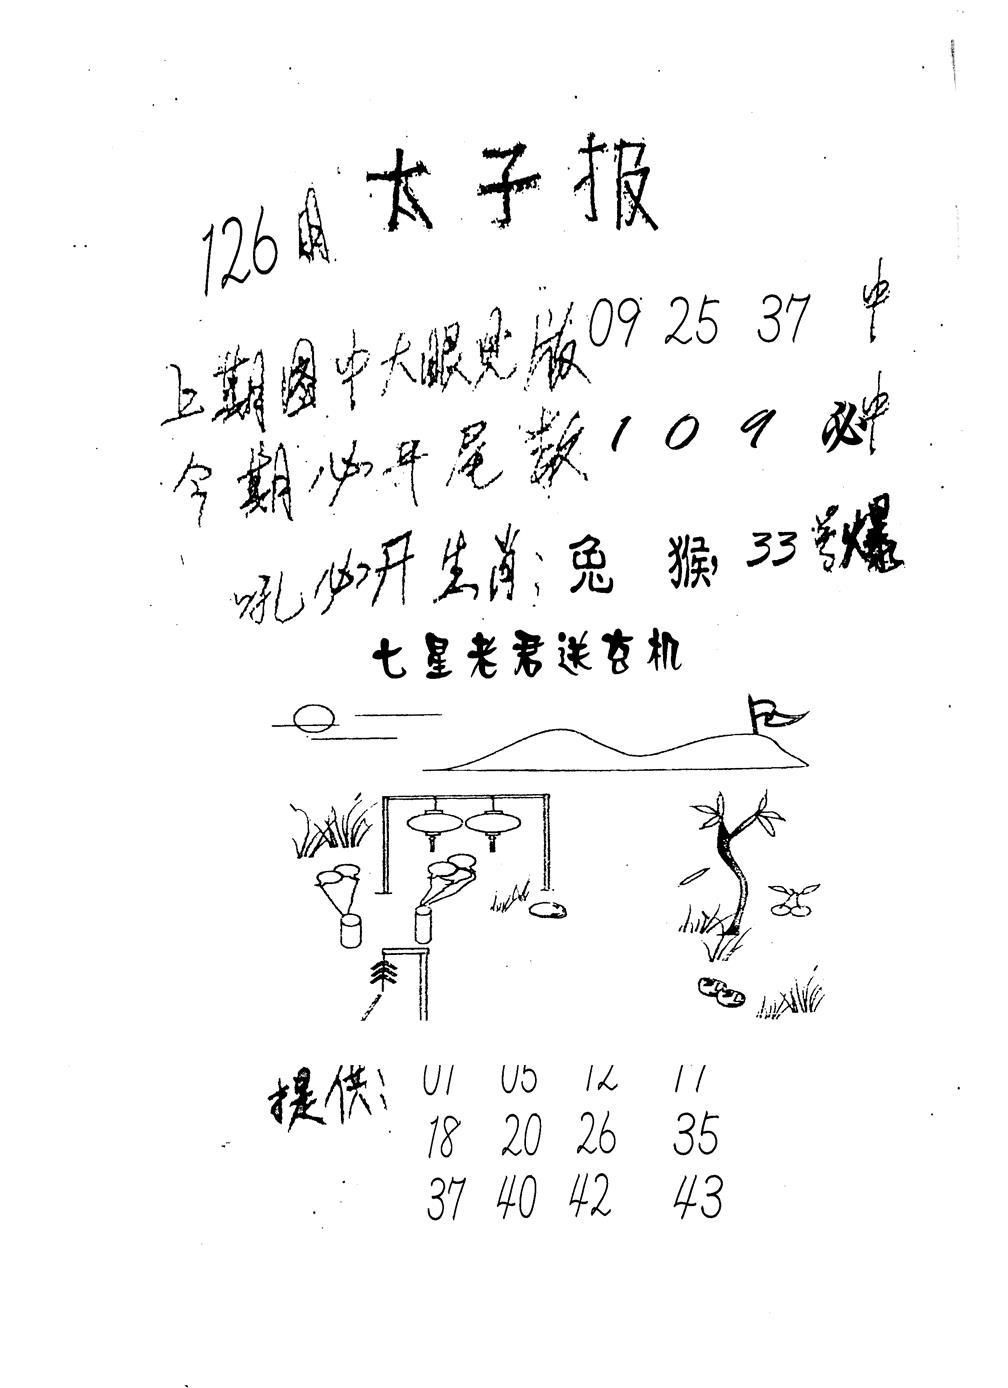 太子报
126期
上期图中大眼见版09 25 37 中
今期必开尾数1 0 9 必中
吼必开生肖：兔 猴，33号爆
七星老君送玄机
提供：
18 20 26 35
37 40 42 43